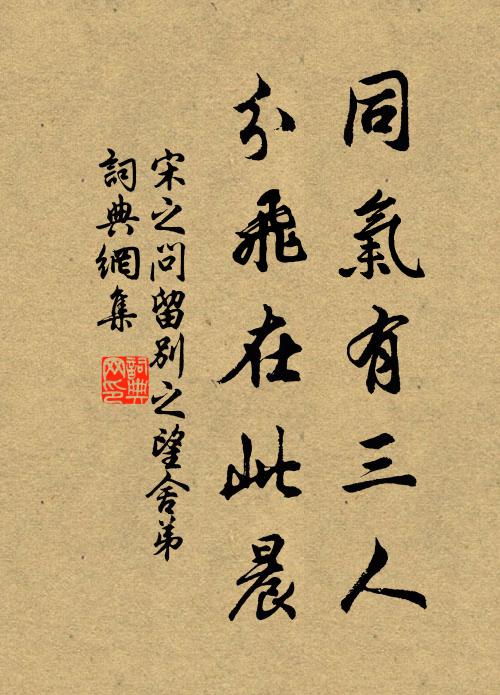 同氣有三人
分飛在此晨
宋之問留別之望舍弟
詞典網集
詞典
网印